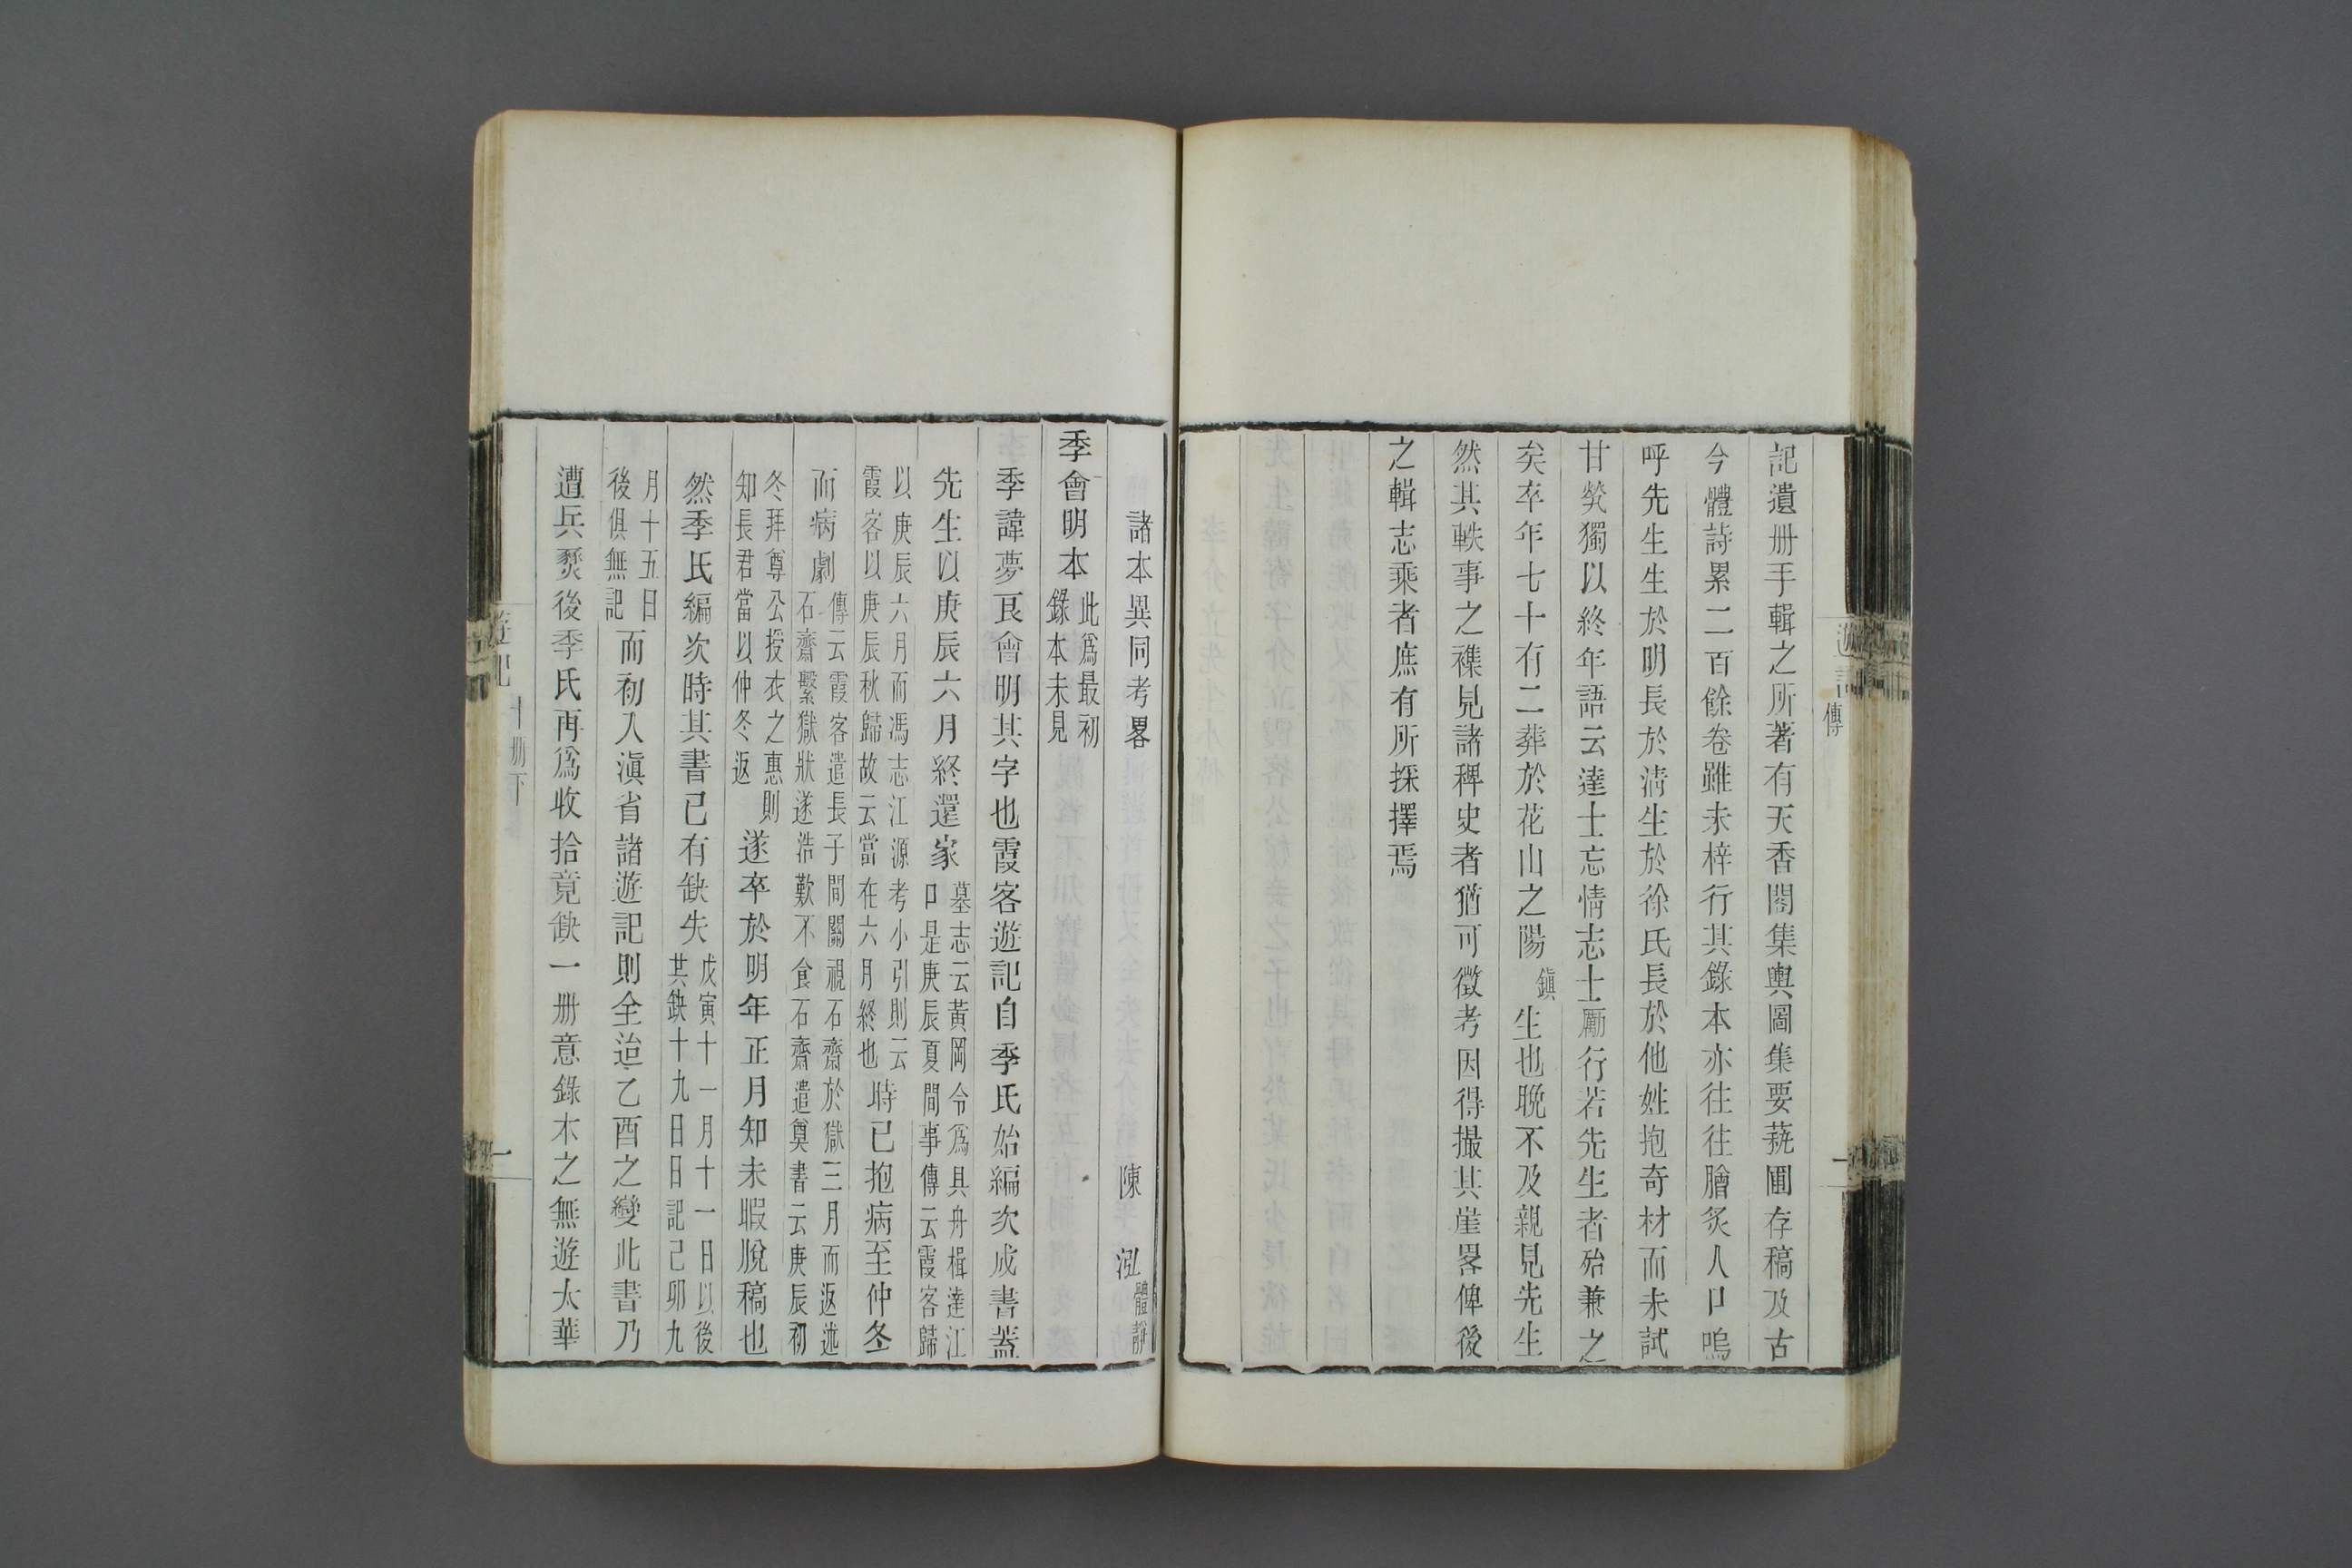 記遺册手輯之所著有天香閣集輿圖集要蓺圃存稿及古
今體詩累二百餘卷雖未梓行其錄本亦往往膾炙人口嗚
呼先生生於明長於清生於徐氏長於他姓抱奇材而未試
甘煢獨以終年語云達士忘情志士厲行若先生者殆兼之
矣卒年七十有二葬於花山之陽鎮生也晚不及親見先生
然其軼事之襍見諸稗史者猶可徵考因得撮其崖畧俾後
之輯志乘者庶有所採擇焉
傳
一
諸本異同考畧 陳 泓體靜
季會明本此爲最初
錄本未見
季諱夢良會明其字也霞客遊記自季氏始編次成書蓋
先生以庚辰六月終還家墓志云黃岡令爲具舟楫達江
口是庚辰夏間事傳云霞客歸
以庚辰六月而馮志江源考小引則云
霞客以庚辰秋歸故云當在六月終也時已抱病至仲冬
而病劇傳云霞客遣長子間關視石齋於獄三月而返述
石齋繫獄狀遂浩歎不食石齋遣奠書云庚辰初
冬拜尊公授衣之惠則
知長君當以仲冬返遂卒於明年正月知未暇脫稿也
然季氏編次時其書已有缺失戊寅十一月十一日以後
共缺十九日日記己卯九
月十五日
後俱無記而初入滇省諸遊記則全迨乙酉之變此書乃
遭兵燹後季氏再爲收拾竟缺一册意錄本之無遊太華
遊記
十册下
一